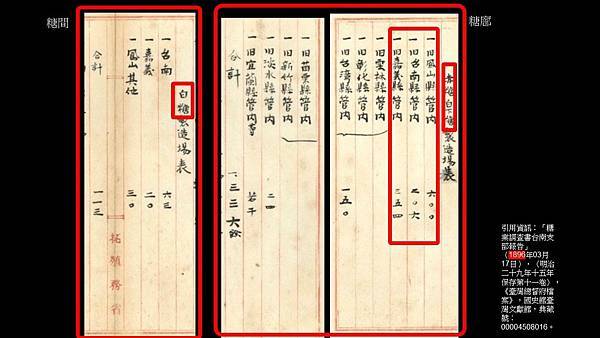 糖廍
赤糖白下糖製造場表
一旧鳳山縣管内 六〇〇
一旧台南縣管内 二〇六
一旧嘉義縣管内 二五四
一旧雲林縣管内
一旧彰化縣管内
一旧台湾縣管内 一五〇
一旧苗栗縣管内
一旧新竹縣管内
一旧淡水縣管内 二四
一旧宜蘭縣管内 若干
合計
糖間
白糖製造場表
一台南 六三
一嘉義 二〇
一鳳山其他 三〇
合計 一一三
拓殖務省
引用資訊：「糖
業調査書台南支
部報告」
（1896年03月
17日），〈明治
二十九年十五年
保存第十一卷〉，
《臺灣總督府檔
案》，國史館臺
灣文獻館，典藏
號：
00004508016。